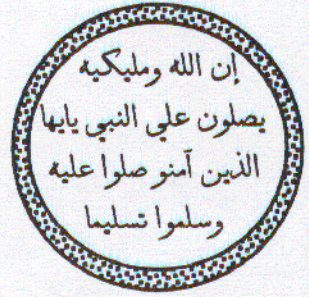 إن الله ومليكيه
يصلون على النبي يايها
الذين آمنو صلوا عليه
وسلموا تسليما